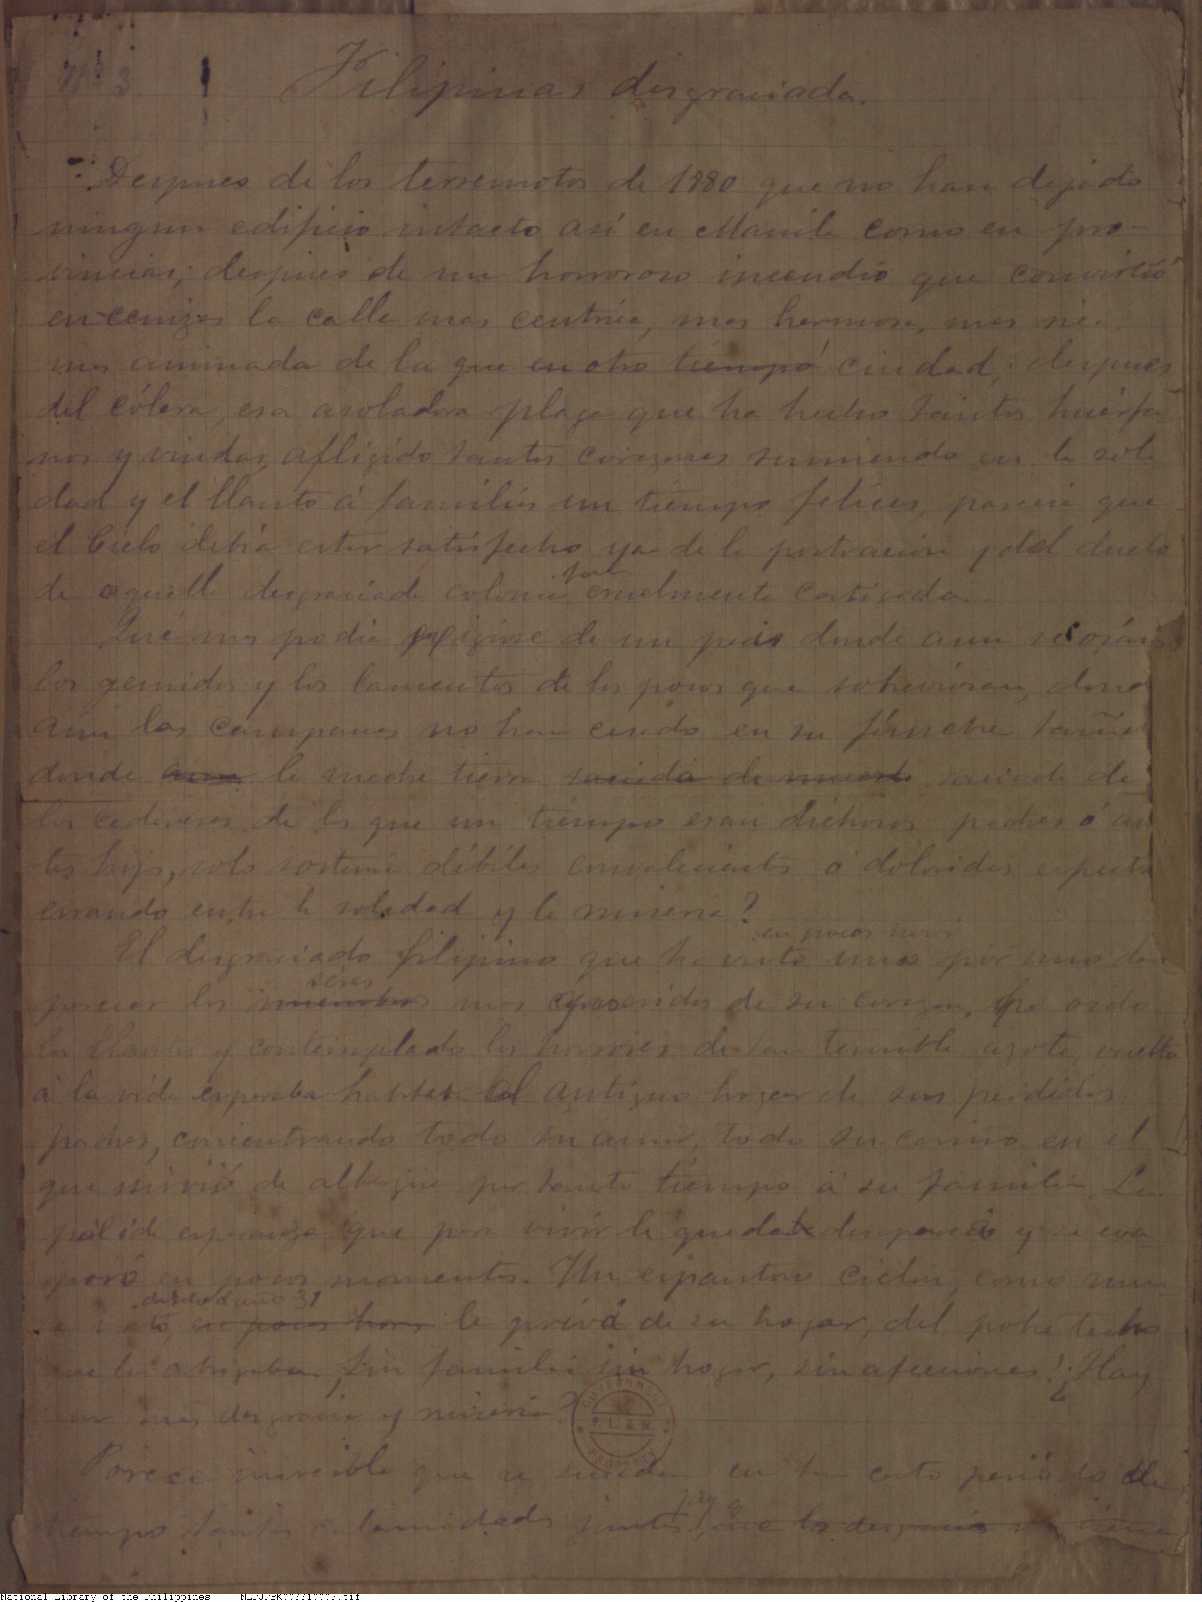 Nº 3.
Filipinas desgraciada.
Despues de los terremotos de 1880 que no han dejado
ningun edificio intacto así en Manila como en pro-
vincias; despues de un horroroso incendio que convirtió
en cenizas la calle mas centrica, mas hermosa, mas
mas animada de la que en otro tiempo ciudad; despues
del cólera, esa asoladora plaga que ha hecho tantos huérfa
nos y viudas, afligido tantos corazones sumiendo en la sole
dad y el llanto á familias un tiempo felices, parecía que
el Cielo debía estar satisfecho ya de la postracion y del duelo
de aquella desgraciada colonia tan cruelmente castigada.
Qué mas podia exigirse de un pais donde aun se
los gemidos y los lamentos de los pocos que sobrevivieran, donde
aun las campanas no han cesado en su fúnebre
donde aun la madre tierra saciada de muerte saciada de
los cadáveres de los que un tiempo eran dichosos padres ó
tes hijos, solo sostenia débiles convalecientes ó doloridos
errando entre la soledad y la miseria?
en pocos
El desgraciado filipino que ha visto uno por uno
seres
perecer los miembros mas queridos de su corazon, ha
los llantos y contemplado los horrores de tan terrible azote, vuelto
á la vida esperaba habitar el antiguo hogar de sus perdidos
padres, concentrando todo su amor, todo su cariño en el
que sirvió de albergue por tanto tiempo á su familia. La
pálida esperanza que para vivir le quedaba desapareció y se eva-
poró en pocos momentos. Un espantoso ciclon, como
desde el año 31
en pocas horas le privó de su hogar, del pobre techo
que le abrigaba. Sin familia sin hogar, sin afecciones! ¿Hay
mas desgracia y miseria?
Parece increible que se sucedan en tan corto periodo de
tiempo tantas calamidades juntas, que las desgracias
National Library of the Philippines